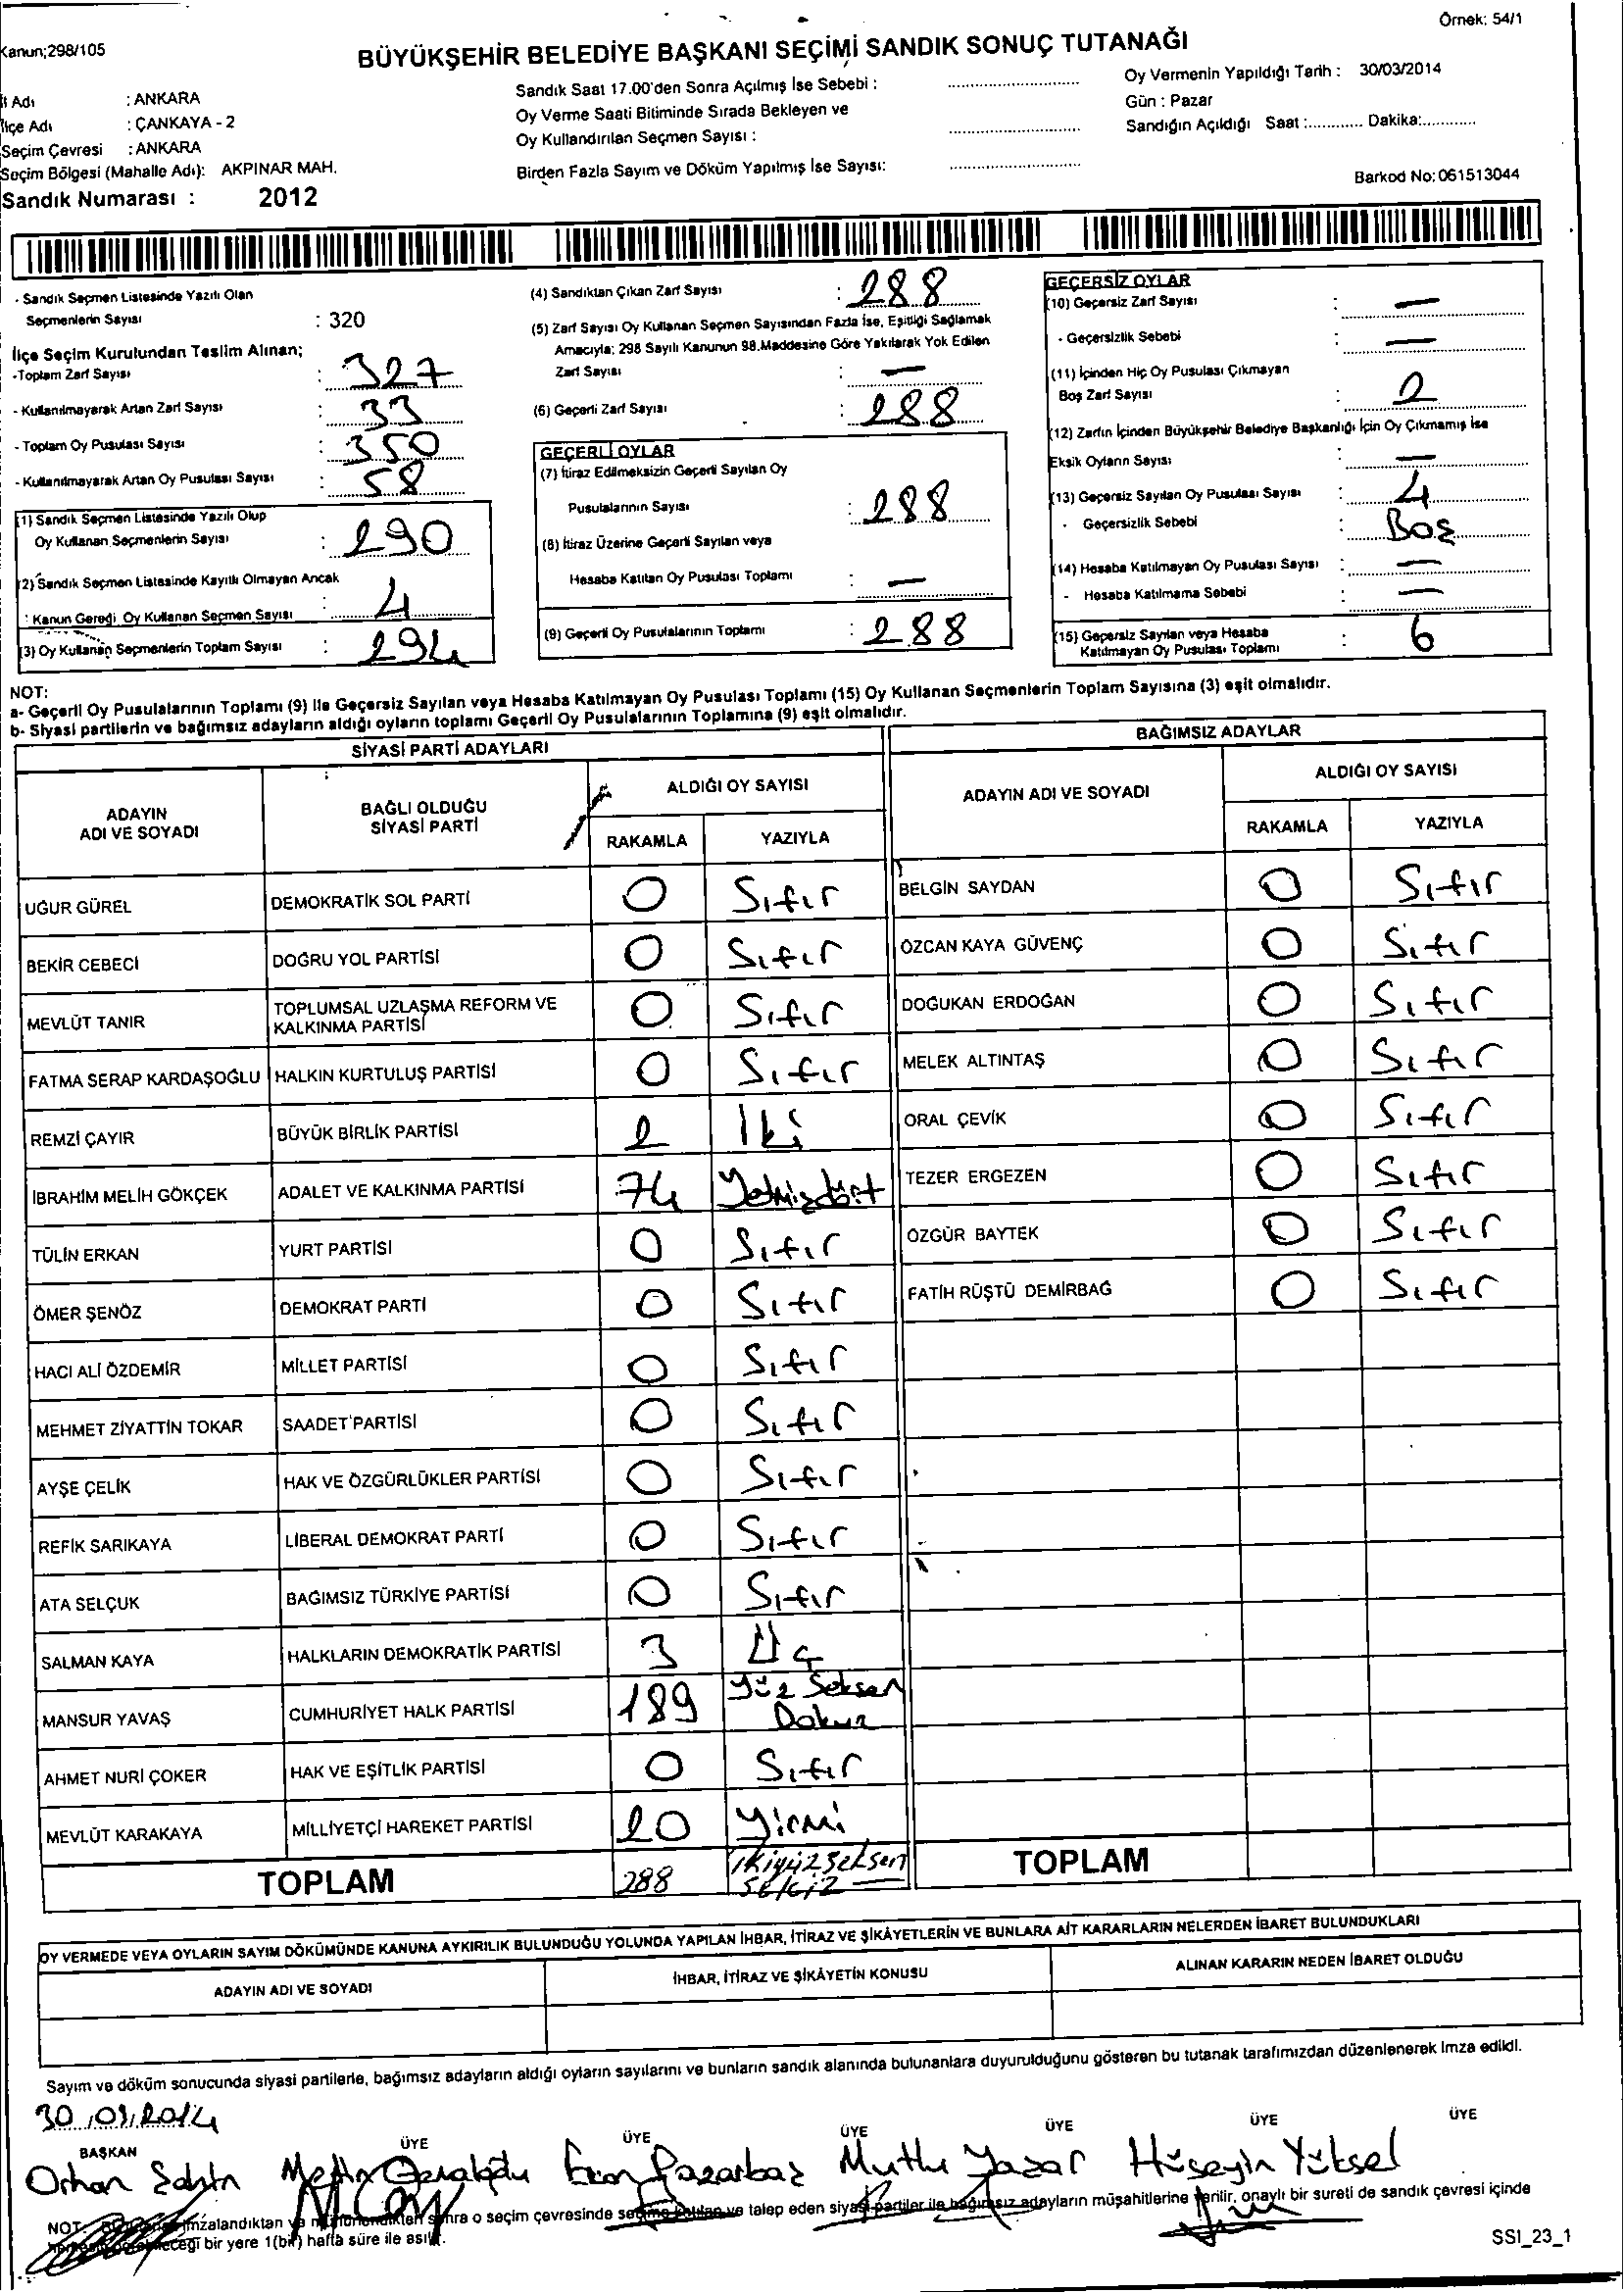 Örnek: 54/1
Kanun;298/105
BÜYÜKŞEHİR BELEDİYE BAŞKANI SEÇİMİ SANDIK SONUÇ TUTANAĞI
İl Adı : ANKARA
İlçe Adı : ÇANKAYA - 2
Seçim Çevresi : ANKARA
Seçim Bölgesi (Mahalle Adı): AKPINAR MAH.
Sandık Numarası : 2012
Sandık Saat 17.00'den Sonra Açılmış İse Sebebi :
Oy Verme Saati Bitiminde Sırada Bekleyen ve
Oy Kullandırılan Seçmen Sayısı :
Birden Fazla Sayım ve Döküm Yapılmış İse Sayısı:
Oy Vermenin Yapıldığı Tarih : 30/03/2014
Gün : Pazar
Sandığın Açıldığı Saat :............ Dakika:............
Barkod No: 061513044
- Sandık Seçmen Listesinde Yazılı Olan
Seçmenlerin Sayısı : 320
İlçe Seçim Kurulundan Teslim Alınan;
-Toplam Zarf Sayısı : 327
- Kullanılmayarak Artan Zarf Sayısı : 33
- Toplam Oy Pusulası Sayısı : 350
- Kullanılmayarak Artan Oy Pusulası Sayısı : 58
(1) Sandık Seçmen Listesinde Yazılı Olup
Oy Kullanan Seçmenlerin Sayısı : 290
(2) Sandık Seçmen Listesinde Kayıtlı Olmayan Ancak
Kanun Gereği Oy Kullanan Seçmen Sayısı : 4
(3) Oy Kullanan Seçmenlerin Toplam Sayısı : 294
(4) Sandıktan Çıkan Zarf Sayısı : 288
(5) Zarf Sayısı Oy Kullanan Seçmen Sayısından Fazla İse, Eşitliği Sağlamak
Amacıyla; 298 Sayılı Kanunun 98.Maddesine Göre Yakılarak Yok Edilen
Zarf Sayısı : —
(6) Geçerli Zarf Sayısı : 288
GEÇERLİ OYLAR
(7) İtiraz Edilmeksizin Geçerli Sayılan Oy
Pusulalarının Sayısı : 288
(8) İtiraz Üzerine Geçerli Sayılan veya
Hesaba Katılan Oy Pusulası Toplamı : —
(9) Geçerli Oy Pusulalarının Toplamı : 288
GEÇERSİZ OYLAR
(10) Geçersiz Zarf Sayısı : —
- Geçersizlik Sebebi : —
(11) İçinden Hiç Oy Pusulası Çıkmayan
Boş Zarf Sayısı : 2
(12) Zarfın İçinden Büyükşehir Belediye Başkanlığı İçin Oy Çıkmamış İse
Eksik Oyların Sayısı : —
(13) Geçersiz Sayılan Oy Pusulası Sayısı : 4
- Geçersizlik Sebebi : Boş
(14) Hesaba Katılmayan Oy Pusulası Sayısı : —
- Hesaba Katılmama Sebebi : —
(15) Geçersiz Sayılan veya Hesaba
Katılmayan Oy Pusulası Toplamı : 6
NOT:
a- Geçerli Oy Pusulalarının Toplamı (9) ile Geçersiz Sayılan veya Hesaba Katılmayan Oy Pusulası Toplamı (15) Oy Kullanan Seçmenlerin Toplam Sayısına (3) eşit olmalıdır.
b- Siyasi partilerin ve bağımsız adayların aldığı oyların toplamı Geçerli Oy Pusulalarının Toplamına (9) eşit olmalıdır.
SİYASİ PARTİ ADAYLARI
ADAYIN ADI VE SOYADI BAĞLI OLDUĞU SİYASİ PARTİ ALDIĞI OY SAYISI
RAKAMLA YAZIYLA
UĞUR GÜREL DEMOKRATİK SOL PARTİ 0 Sıfır
BEKİR CEBECİ DOĞRU YOL PARTİSİ 0 Sıfır
MEVLÜT TANIR TOPLUMSAL UZLAŞMA REFORM VE KALKINMA PARTİSİ 0 Sıfır
FATMA SERAP KARDAŞOĞLU HALKIN KURTULUŞ PARTİSİ 0 Sıfır
REMZİ ÇAYIR BÜYÜK BİRLİK PARTİSİ 2 İki
İBRAHİM MELİH GÖKÇEK ADALET VE KALKINMA PARTİSİ 74 Yetmişdört
TÜLİN ERKAN YURT PARTİSİ 0 Sıfır
ÖMER ŞENÖZ DEMOKRAT PARTİ 0 Sıfır
HACI ALİ ÖZDEMİR MİLLET PARTİSİ 0 Sıfır
MEHMET ZİYATTİN TOKAR SAADET PARTİSİ 0 Sıfır
AYŞE ÇELİK HAK VE ÖZGÜRLÜKLER PARTİSİ 0 Sıfır
REFİK SARIKAYA LİBERAL DEMOKRAT PARTİ 0 Sıfır
ATA SELÇUK BAĞIMSIZ TÜRKİYE PARTİSİ 0 Sıfır
SALMAN KAYA HALKLARIN DEMOKRATİK PARTİSİ 3 Üç
MANSUR YAVAŞ CUMHURİYET HALK PARTİSİ 189 Yüz Seksen Dokuz
AHMET NURİ ÇOKER HAK VE EŞİTLİK PARTİSİ 0 Sıfır
MEVLÜT KARAKAYA MİLLİYETÇİ HAREKET PARTİSİ 20 Yirmi
TOPLAM 288 ikiyüzseksen sekiz
BAĞIMSIZ ADAYLAR
ADAYIN ADI VE SOYADI ALDIĞI OY SAYISI
RAKAMLA YAZIYLA
BELGİN SAYDAN 0 Sıfır
ÖZCAN KAYA GÜVENÇ 0 Sıfır
DOĞUKAN ERDOĞAN 0 Sıfır
MELEK ALTINTAŞ 0 Sıfır
ORAL ÇEVİK 0 Sıfır
TEZER ERGEZEN 0 Sıfır
ÖZGÜR BAYTEK 0 Sıfır
FATİH RÜŞTÜ DEMİRBAĞ 0 Sıfır
TOPLAM
OY VERMEDE VEYA OYLARIN SAYIM DÖKÜMÜNDE KANUNA AYKIRILIK BULUNDUĞU YOLUNDA YAPILAN İHBAR, İTİRAZ VE ŞİKÂYETLERİN VE BUNLARA AİT KARARLARIN NELERDEN İBARET BULUNDUKLARI
ADAYIN ADI VE SOYADI İHBAR, İTİRAZ VE ŞİKÂYETİN KONUSU ALINAN KARARIN NEDEN İBARET OLDUĞU
Sayım ve döküm sonucunda siyasi partilerle, bağımsız adayların aldığı oyların sayılarını ve bunların sandık alanında bulunanlara duyurulduğunu gösteren bu tutanak tarafımızdan düzenlenerek imza edildi.
30.03.2014
BAŞKAN ÜYE ÜYE ÜYE ÜYE ÜYE ÜYE
Orhan Şahin Metin Pazarbaş Mutlu Yazar Hüseyin Yüksel
NOT: imzalandıktan ve mühürlendikten sonra o seçim çevresinde seçime katılan ve talep eden siyasi partiler ile bağımsız adayların müşahitlerine verilir, onaylı bir sureti de sandık çevresi içinde
bir yere 1(bir) hafta süre ile asılır.
SSI_23_1